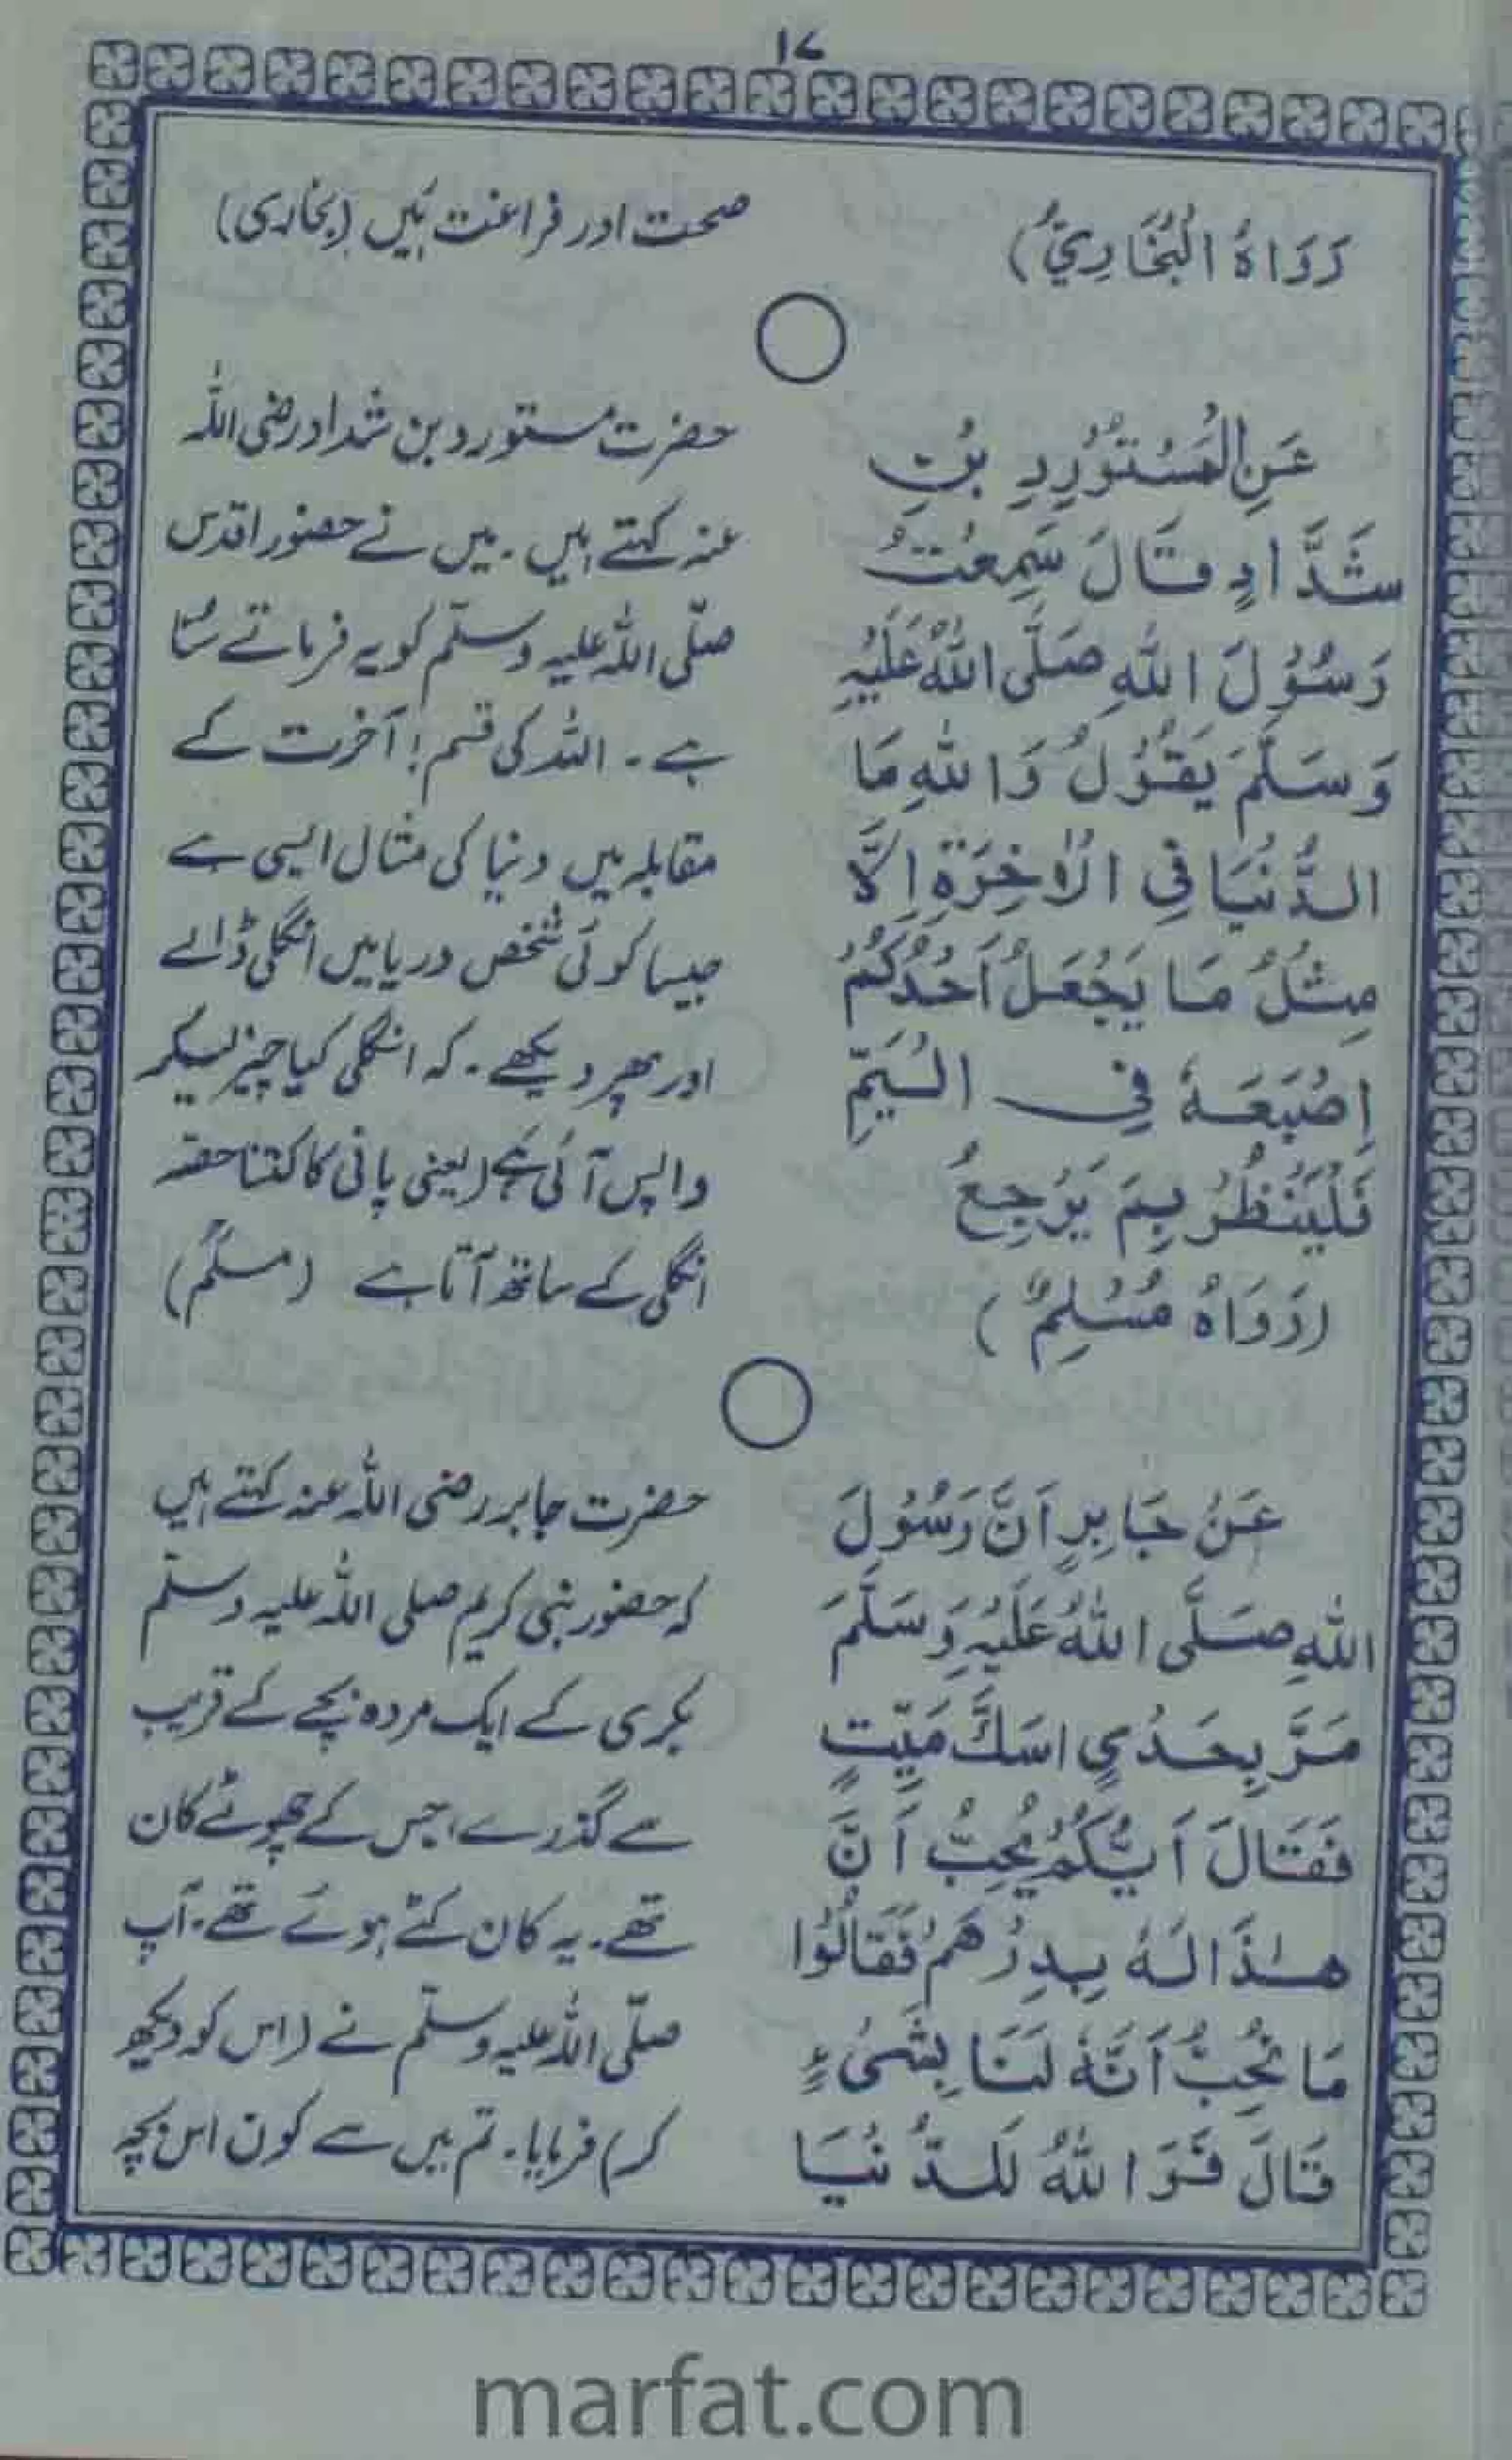 ۱۷
رَوَاهُ الْبُخَارِيُّ)
عَنِ الْمُسْتَوْرِدِ بْنِ
شَدَّادٍ قَالَ سَمِعْتُ
رَسُوْلَ اللهِ صَلَّى اللهُ عَلَيْهِ
وَسَلَّمَ يَقُوْلُ وَاللهِ مَا
الدُّنْيَا فِي الْاٰخِرَةِ اِلَّا
مِثْلُ مَا يَجْعَلُ اَحَدُكُمْ
اِصْبَعَهٗ فِي الْيَمِّ
فَلْيَنْظُرْ بِمَ يَرْجِعُ
(رَوَاهُ مُسْلِمٌ)
عَنْ جَابِرٍ اَنَّ رَسُوْلَ
اللهِ صَلَّى اللهُ عَلَيْهِ وَسَلَّمَ
مَرَّ بِجَدْيٍ اَسَكَّ مَيِّتٍ
فَقَالَ اَيُّكُمْ يُحِبُّ اَنَّ
هٰذَا لَهٗ بِدِرْهَمٍ فَقَالُوْا
مَا نُحِبُّ اَنَّهٗ لَنَا بِشَيْءٍ
قَالَ فَوَاللهُ لَلدُّنْيَا
صحت اور فراغت ہَیں (بخاری)
حضرت مستورد بن شداد رضی اللہ
عنہ کہتے ہیں۔ میں نے حضور اقدس
صلّی اللہ علیہ وسلّم کو یہ فرماتے سُنا
ہے۔ اللہ کی قسم! آخرت کے
مقابلہ میں دنیا کی مثال ایسی ہے
جیسا کوئی شخص دریا میں انگلی ڈالے
اور پھر دیکھے۔ کہ انگلی کیا چیز لیکر
واپس آئی ہَے (یعنی پانی کا کتنا حصّہ
انگلی کے ساتھ آتا ہے (مسلم)
حضرت جابر رضی اللہ عنہ کہتے ہیں
کہ حضور نبی کریم صلی اللہ علیہ وسلّم
بکری کے ایک مردہ بچے کے قریب
سے گذرے، جس کے چھوٹے کان
تھے۔ یہ کان کٹے ہوئے تھے۔ آپ
صلّی اللہ علیہ وسلّم نے (اس کو دیکھ
کر) فرمایا۔ تم میں سے کون اس بچہ
marfat.com